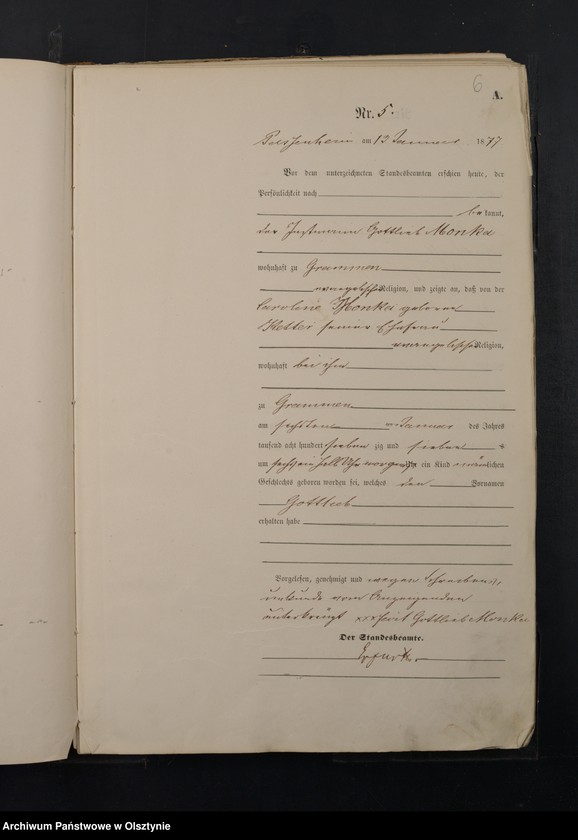 6
A.
Nr. 5.
Passenheim am 13 Januar 1877
Vor dem unterzeichneten Standesbeamten erschien heute, der
Persönlichkeit nach
be kannt,
der Instmann Gottlieb Monka
wohnhaft zu Grammen
evangelischer Religion, und zeigte an, daß von der
Caroline Monka geborene
seiner Ehefrau
evangelischer Religion,
wohnhaft bei ihm
zu Grammen
am sechsten Januar des Jahres
tausend acht hundert sieben zig und sieben
am Uhr ein Kind männlichen
Geschlechts geboren worden sei, welches den Vornamen
Gottlieb
erhalten habe
Vorgelesen, genehmigt und wegen Schreibens
unkunde vom Anzeigenden
unterkreuzt xxx Gottlieb Monka
Der Standesbeamte.
Archiwum Państwowe w Olsztynie